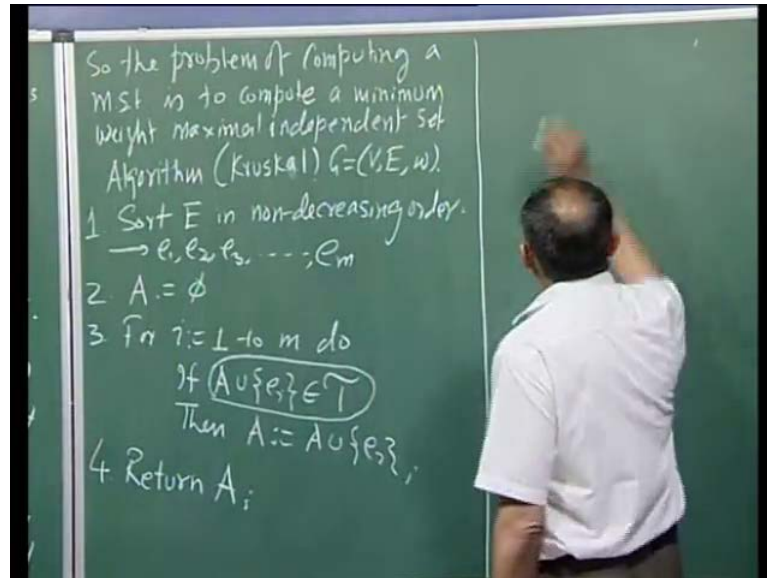 So the problem of Computing a
MST is to compute a minimum
weight maximal independent set
Algorithm (Kruskal) G=(V,E,w).
1 Sort E in non-decreasing order.
→ e₁, e₂, e₃, ----, em
2. A := ϕ
3. For i := 1 to m do
If A ∪ {ei} ∈ T
Then A := A ∪ {ei};
4. Return A;